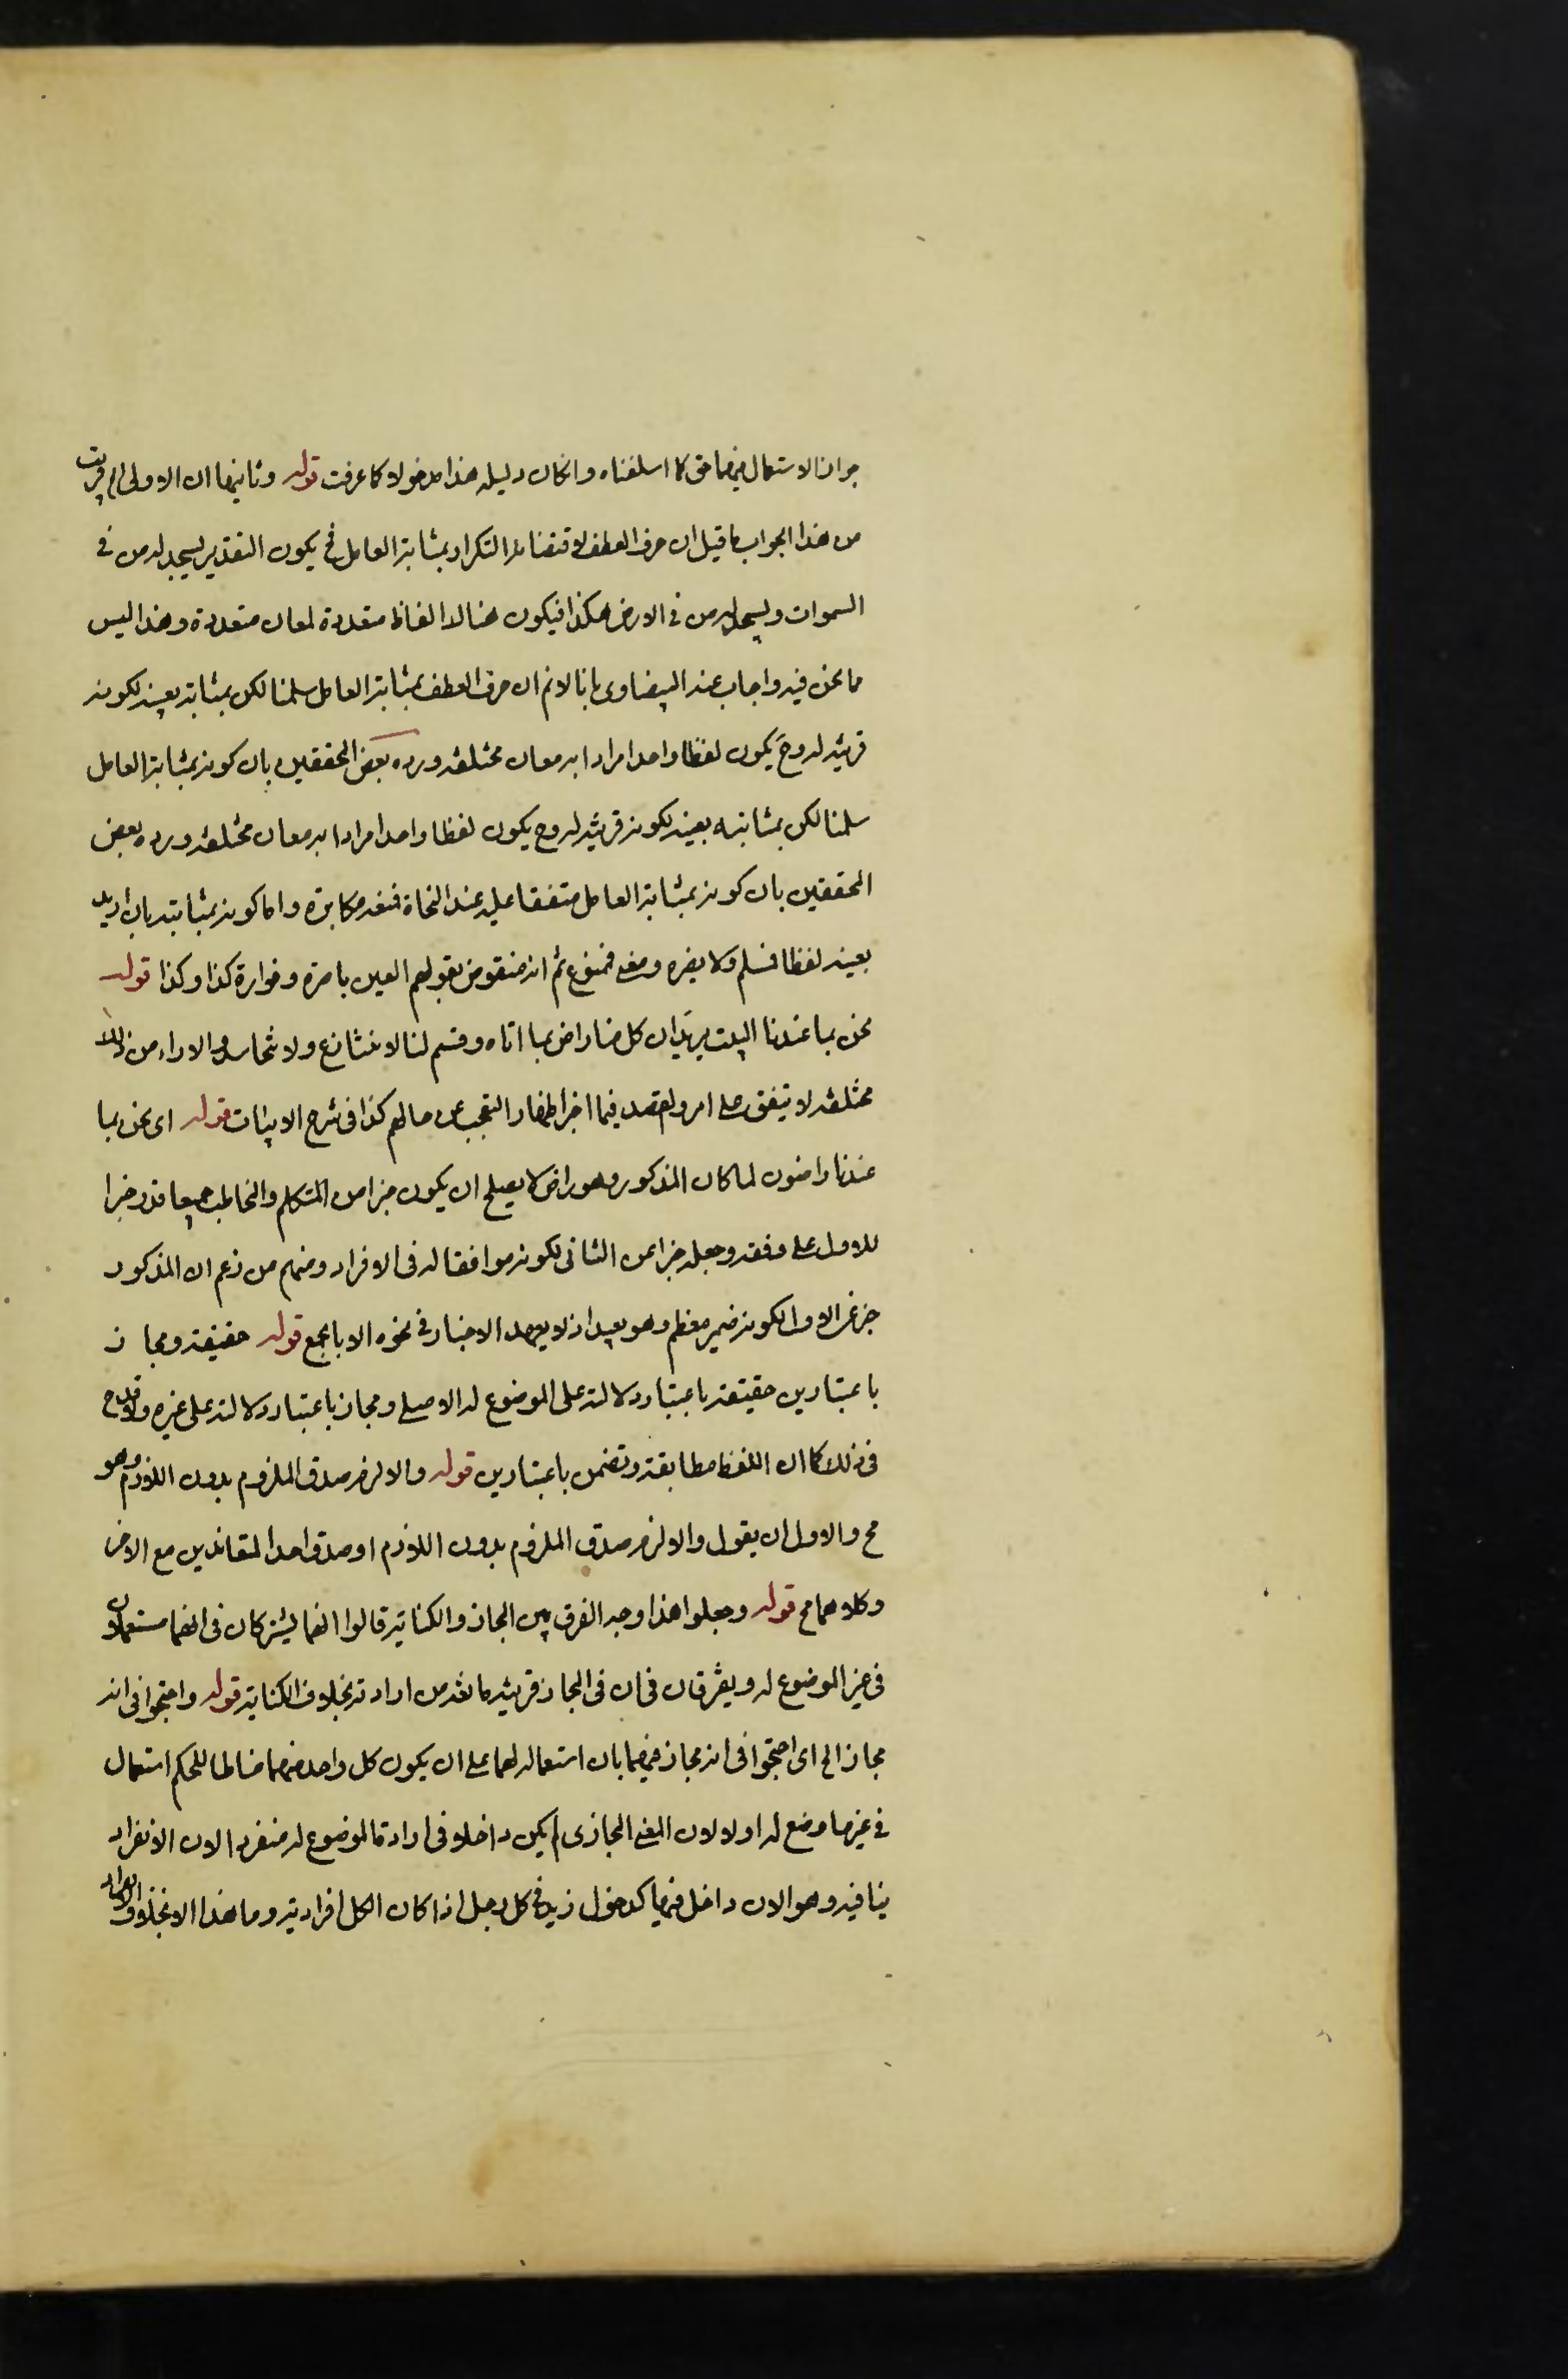 جواز الاستعمال فيهما حق كما اسلفناه وان كان دليله هذا مدخولا كما عرفت قوله وثانيهما ان الاولى اه قريب
من هذا الجواب ما قيل ان حرف العطف لاقتضائه التكرار بمثابة العامل فح يكون التقدير يسجد له من في
السموات ويسجد له من في الارض هكذا فيكون هنالك الفاظ متعددة لمعان متعددة وهذا ليس
مما نحن فيه واجاب عنه البيضاوى بانا لا نم ان حرف العطف بمثابة العامل سلمنا لكن بمثابته بعينه لكونه
قرينة له وح يكون لفظا واحدا مرادا به معان مختلفة ورده بعض المحققين بان كونه بمثابة العامل
سلمنا لكن بمثابته بعينه لكونه قرينة له وح يكون لفظا واحدا مرادا به معان مختلفة ورده بعض
المحققين بان كونه بمثابة العامل متفقا عليه عند النحاة فمنعه مكابرة واما كونه بمثابته بان اريد
بعينه لفظا فمسلم ولا يضره ومعنى فممنوع ثم انه منقوض بقولهم العين باصرة وفوارة كذا وكذا قوله
نحن بما عندنا البيت يريد ان كل منا راض بما اتاه وقسم لنا لا نتنازع ولا نتحاسد والاراء من ذلك
مختلفة لا يتفق على امر ولم يقصد فيما اخر اظهار التعجب من حالهم كذا في شرح الابيات قوله اى نحن بما
عندنا راضون لما كان المذكور وهو راض لا يصلح ان يكون خبرا من المتكلم والمخاطب جميعا قدر خبرا
للاول على وفقه وجعله خبرا عن الثانى لكونه موافقا له فى الافراد ومنهم من زعم ان المذكور
خبر عن الاول لكونه ضمير معظم وهو بعيد اذ لا يعهد الاخبار في نحوه الا بالجمع قوله حقيقة ومجاز
باعتبارين حقيقة باعتبار دلالته على الموضوع له الاصلى ومجاز باعتبار دلالته على غيره ولا قدح
فى ذلك كما ان اللفظ مطابقة وتضمن باعتبارين قوله والا لزم صدق الملزوم بدون اللازم وهو
مح والاولى ان يقول والا لزم صدق الملزوم بدون اللازم او صدق احد المتعاندين مع الاخر
وكلاهما مح قوله وجعلوا هذا وجه الفرق بين المجاز والكناية قالوا انهما يشتركان فى انهما مستعملان
فى غير الموضوع له ويفرقان فى ان فى المجاز قرينة مانعة من ارادته بخلاف الكناية قوله واحتجوا فى انه
مجاز الخ اى احتجوا فى انه مجاز فيهما بان استعماله لهما على ان يكون كل واحد منهما مناطا للحكم استعمال
في غير ما وضع له اولا لان المعنى المجازى لم يكن داخلا فى ارادة الموضوع له منفردا لان الانفراد
ينافيه وهو الان داخل فيها كدخول زيد في كل رجل اذا كان الكل افراديه وما هذا الا بخلاف المراد